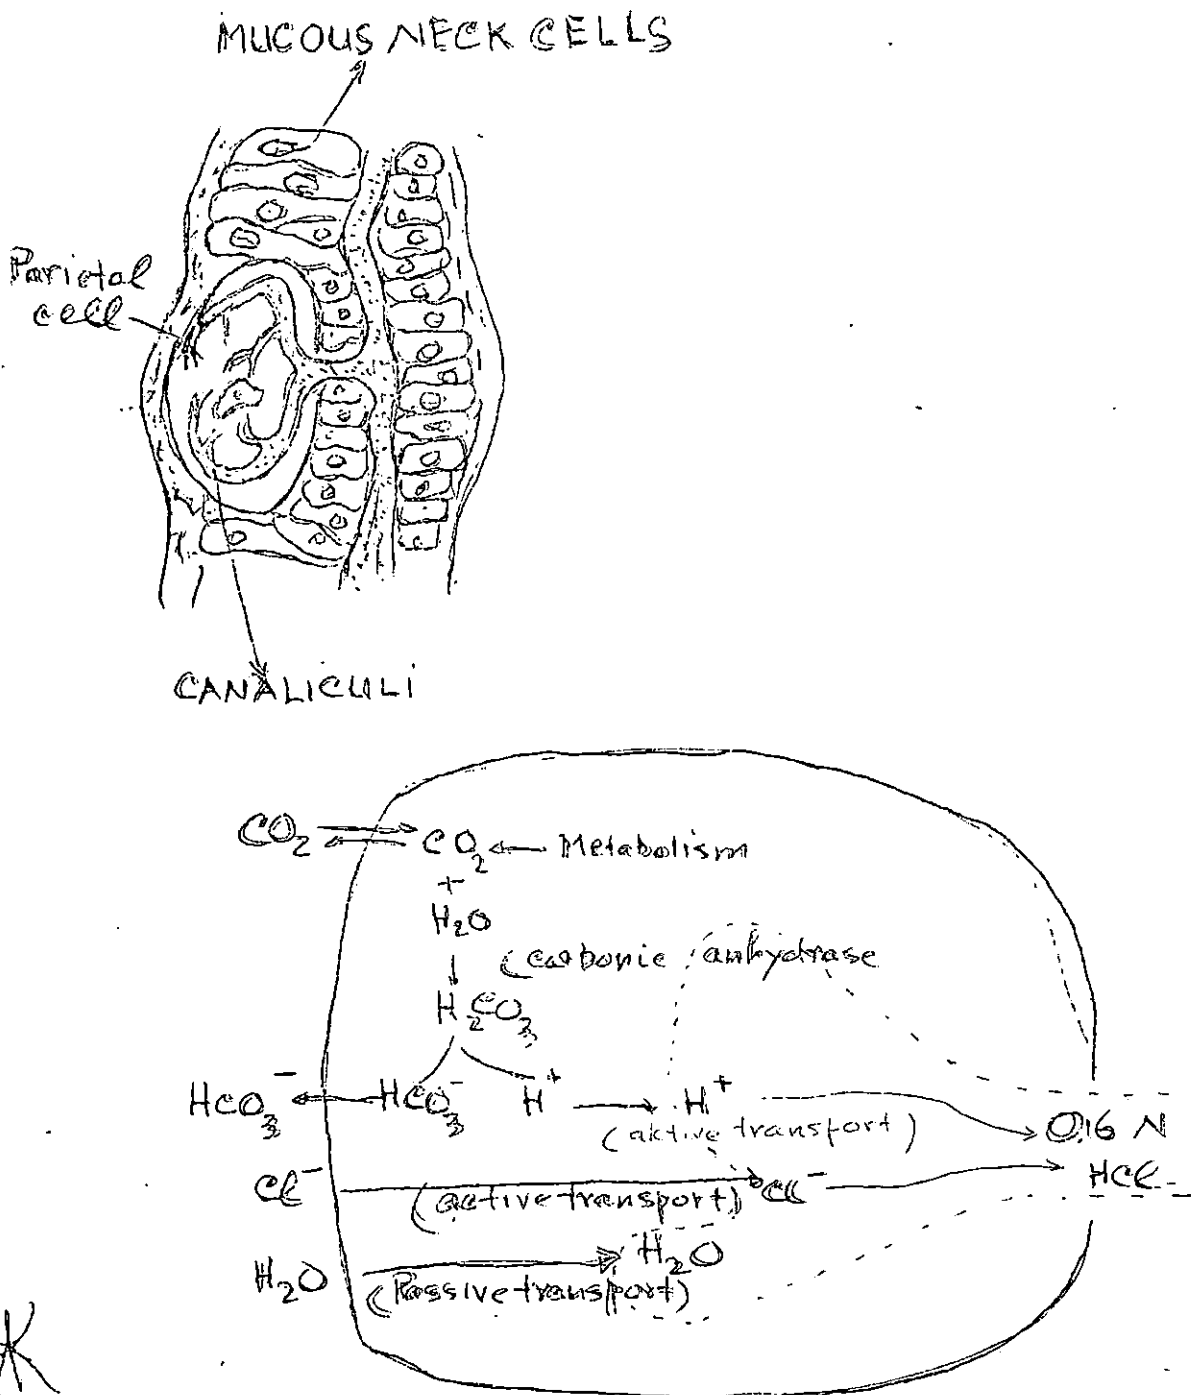 MUCOUS NECK CELLS
Parietal
cell
CANALICULI
CO₂ ⇌ CO₂ ← Metabolism
+
H₂O
(carbonic anhydrase
↓
H₂CO₃
HCO₃⁻ ← HCO₃⁻ H⁺ → H⁺ → 0.16 N
(aktive transport)
HCl
Cl⁻ → Cl⁻
(active transport)
H₂O → H₂O
(Passive transport)